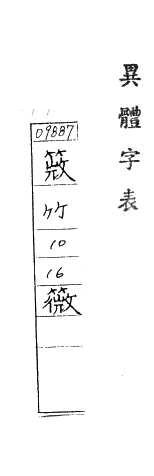 異體字表
09887
竹
10
16
䉠